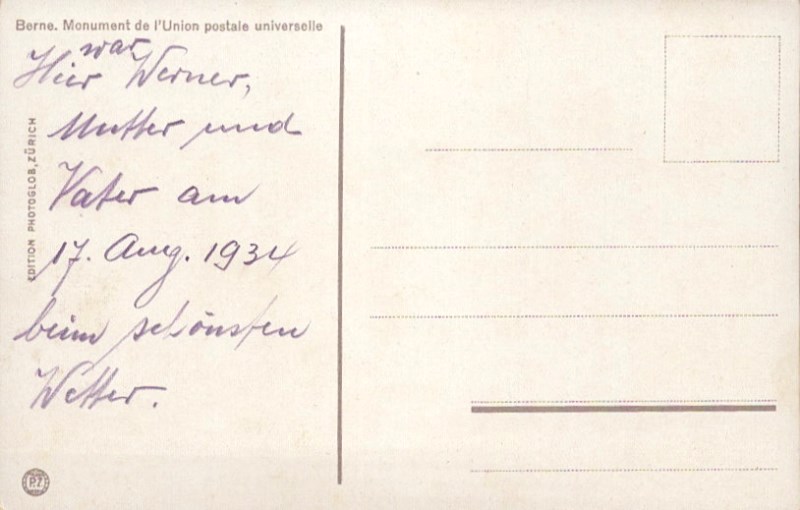 Berne. Monument de l'Union postale universelle
war
Hier Werner,
Mutter und
Vater am
17. Aug. 1934
beim schönsten
Wetter.
EDITION PHOTOGLOB, ZÜRICH
PZ